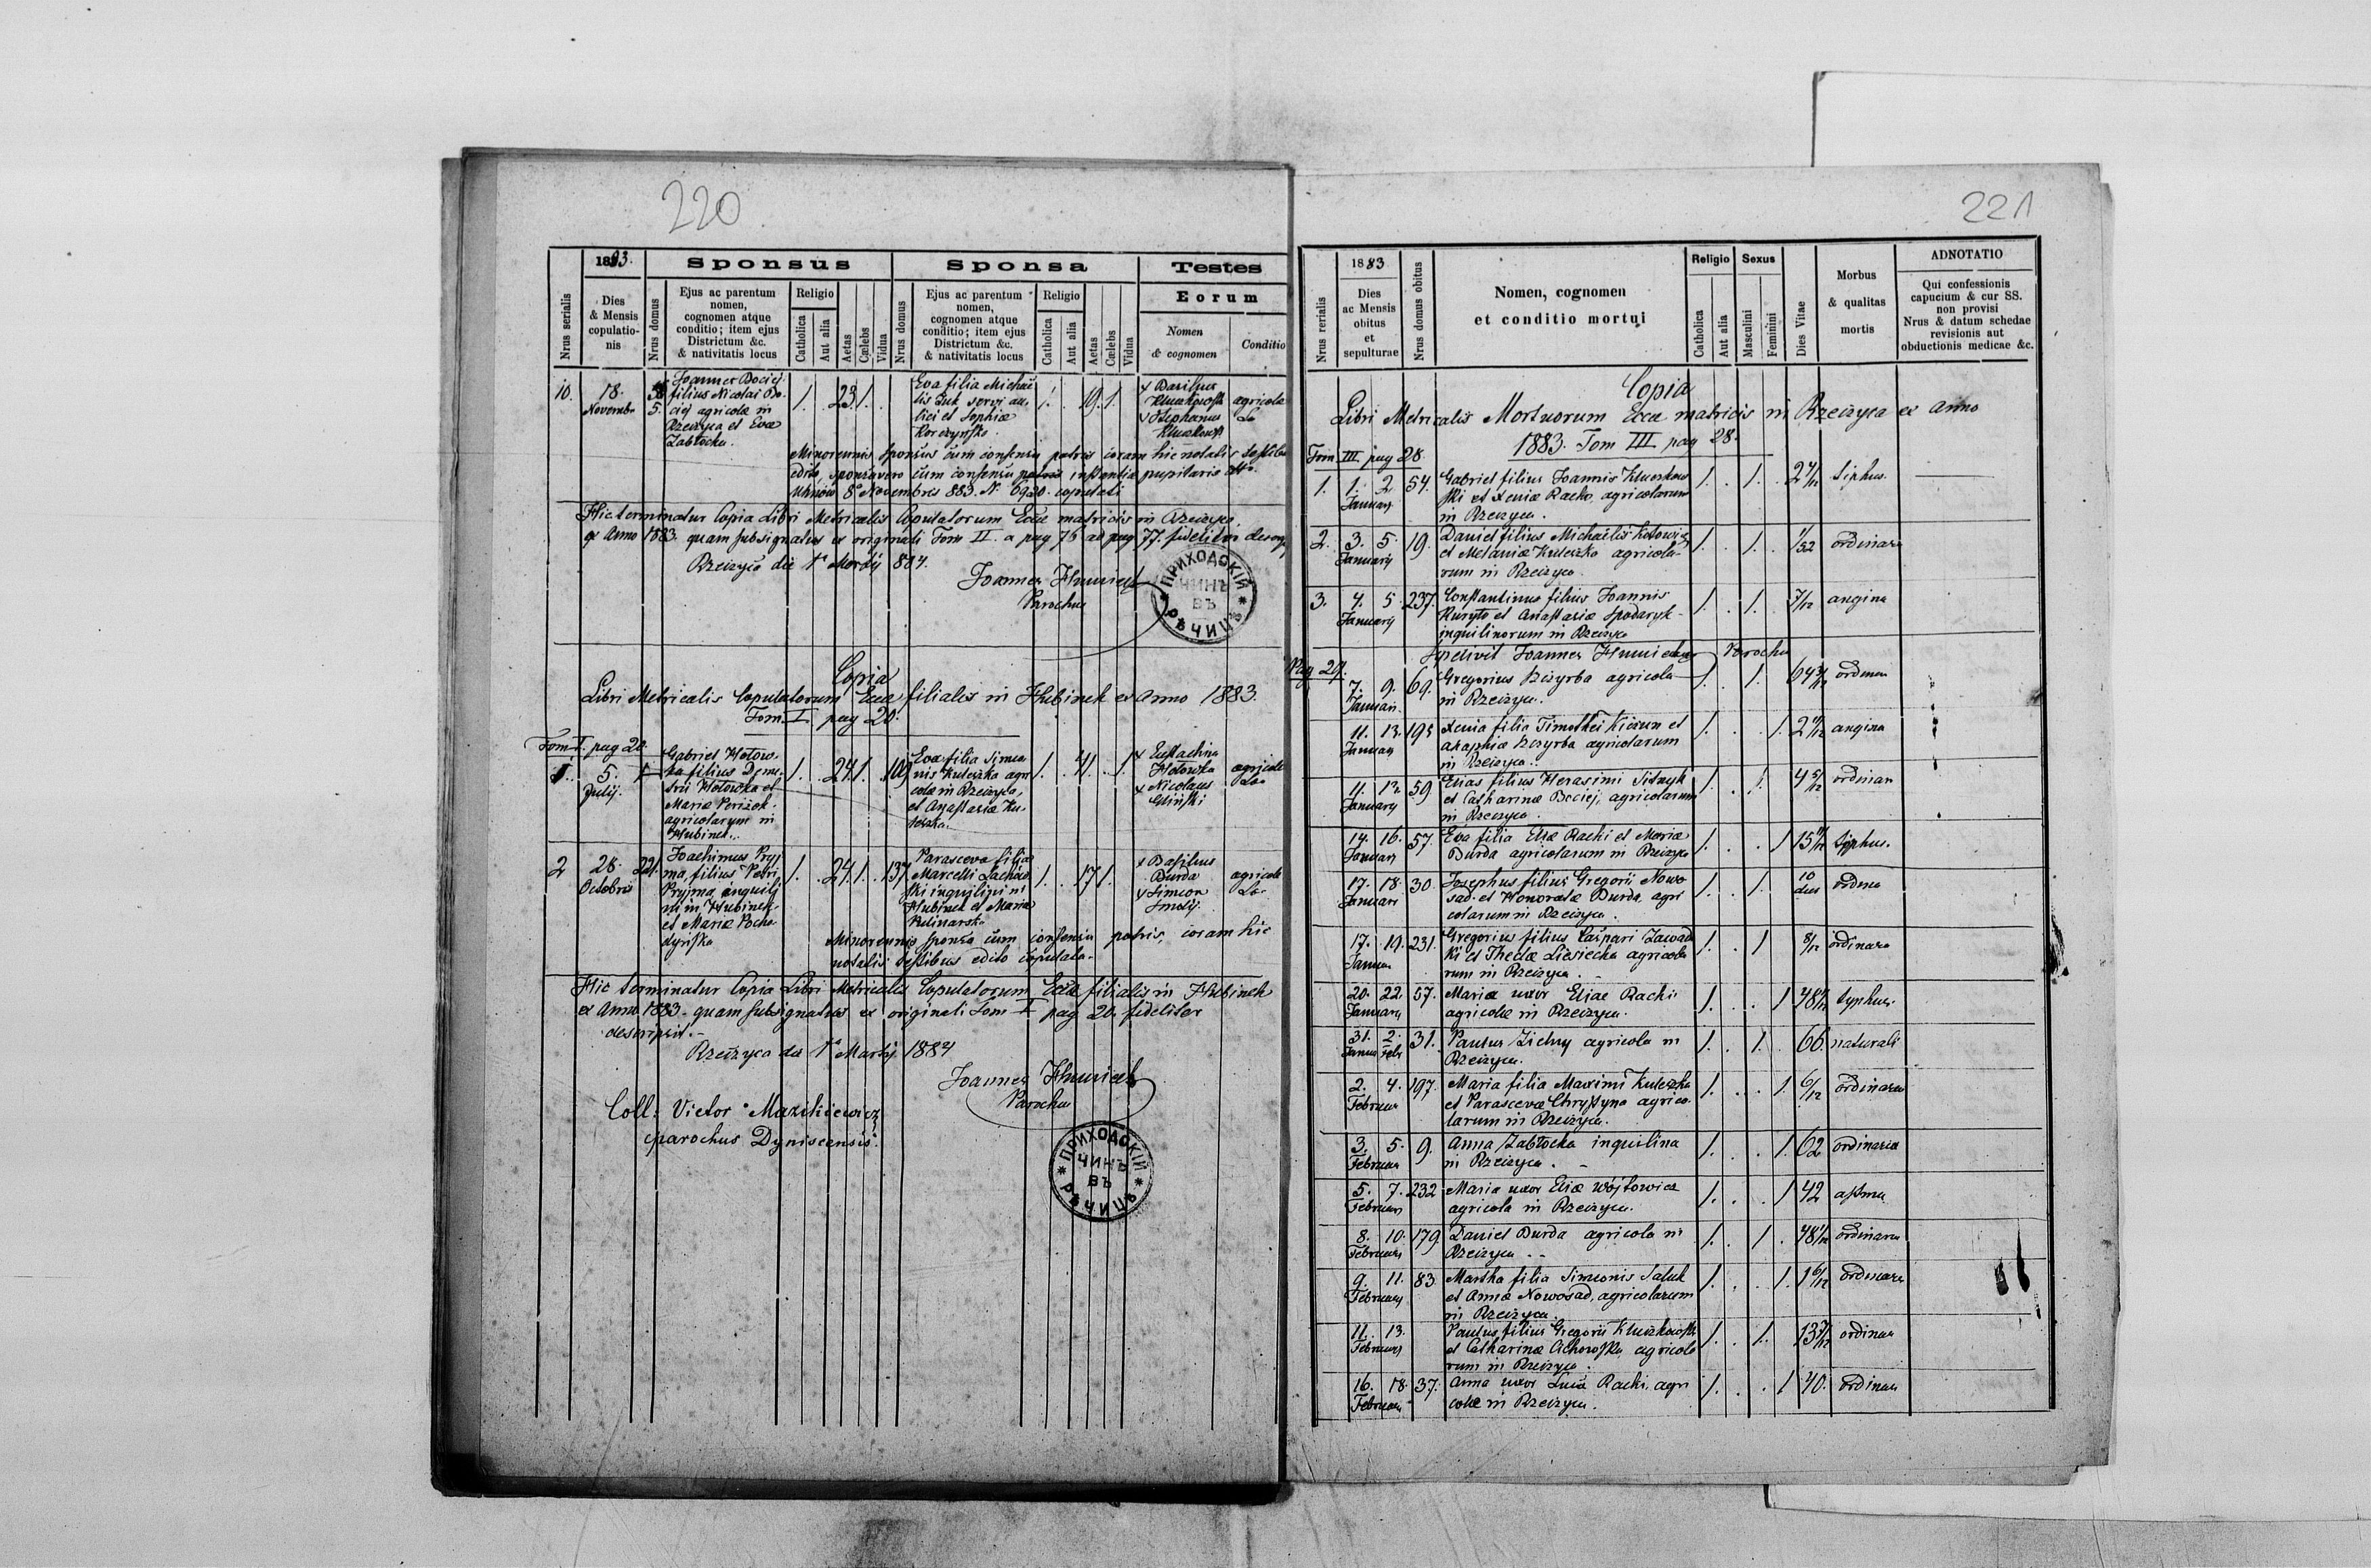 220
1883.
Sponsus
Sponsa
Testes
Nrus serialis
Dies
& Mensis
copulatio-
nis
Nrus domus
Ejus ac parentum
nomen,
cognomen atque
conditio; item ejus
Districtum &c.
& nativitatis locus
Religio
Catholica
Aut alia
Aetas
Cælebs
Vidua
Nrus domus
Ejus ac parentum
nomen,
cognomen atque
conditio; item ejus
Districtum &c.
& nativitatis locus
Religio
Catholica
Aut alia
Aetas
Cælebs
Vidua
Eorum
Nomen
& cognomen
Conditio
10. 18. Novembr 5.
Joannes Bociej
filius Nicolai Bo-
ciej agricolæ in
Rzeczyca et Evæ
Zabłocka.
1. 23. 1.
Eva filia Michaë
lis Luk servi au-
lici et Sophiæ
1. 19. 1.
Basilius
agricola
Stephanus
Minorennis sponsus cum consensu patris coram hic notatis testibus
edito, sponsa vero cum consensu instantia pupilaris
Uhnów 8 Novembris 883. N 6920. copulati
Hic terminatur Copia Libri Metricalis Copulatorum Eccæ matricis in Rzeczyca
ex Anno 1883. quam subsignatus ex originali Tom II. a pag 76 ad pag 77. fideliter
Rzeczyca die 1 Martij 884.
Joannes
Parochus
ПРИХОДСКІЙ
ЧИНЪ
ВЪ
РѢЧИЦѢ
Copia
Libri Metricalis Copulatorum Eccæ filialis in Hubinek ex Anno 1883.
Tom I pag 20.
Tom I. pag 20.
1. 5. Julij. 1
Gabriel Hotow-
ka filius Deme-
trii Hotowka et
Mariæ
agricolarum in
Hubinek.
1. 24. 1. 109
Eva filia Simeo
nis Kuleszka agri
colæ in Rzeczyca,
et Anastasiæ Ku-
leszka.
1. 41. 1.
Eustachius
Hotowka
Nicolaus
Gliński
agricola
2 28. Octobris 221.
Joachimus Pryj
ma, filius Petri
Pryjma, inquili
ni in Hubinek
et Mariæ
1. 24. 1. 137
Parasceva filia
Marcelli
ski inquilini in
Hubinek et Mariæ
1. 17 1.
Basilius
Burda
Simeon
Smolij
agricola
Minorennis sponsa cum consensu patris, coram hic
notatis testibus edito copulata.
Hic terminatur Copia Libri Metricalis Copulatorum Eccæ filialis in Hubinek
ex Anno 1883. quam subsignatus ex originali Tom I pag 20. fideliter
descripsit.
Rzeczyca die 1 Martij 1884
Joannes
Parochus
Coll: Victor Mazikiewicz
parochus Dyniscensis.
ПРИХОДСКІЙ
ЧИНЪ
ВЪ
РѢЧИЦѢ
221
Nrus rerialis
1883
Dies
ac Mensis
obitus
et
sepulturae
Nrus domus obitus
Nomen, cognomen
et conditio mortui
Religio
Catholica
Aut alia
Sexus
Masculini
Feminini
Dies Vitae
Morbus
& qualitas
mortis
ADNOTATIO
Qui confessionis
capucium & cur SS.
non provisi
Nrus & datum schedae
revisionis aut
obductionis medicae &c.
Copia
Libri Metricalis Mortuorum Eccæ matricis in Rzeczyca ex Anno
1883. Tom III pag 28.
Tom III pag 28.
1. 1. 2 January 54. Gabriel filius Joannis
ski et Xeniæ Racho, agricolarum
in Rzeczyca. 1. 1. tiphus.
2. 3. 5. January 19. Daniel filius Michaëlis Kotowicz
et Melaniæ Kuleszka agricola-
rum in Rzeczyca. 1. 1. ordinar
3. 4. 5. January 237. Constantinus filius Joannis
Kuryto et Anastasiæ Spodaryk
inquilinorum in Rzeczyca 1. 1. 7/12 angina
Joannes Parochus
Pag 29.
7. 9. Januar. 69. Gregorius Bzyrba agricola
in Rzeczyca. 1. 1. ordinar
11. 13. January 195 Xenia filia Timothei Kiczun et
Bzyrba agricolarum
in Rzeczyca. 1. 1. angina
11. 13. January 59 Elias filius Herasimi Sitnyk
et Catharinæ Bociej, agricolarum
in Rzeczyca. 1. 1. 4 5/12 ordinar
14. 16. January 57. Eva filia Eliæ Rachi et Mariæ
Burda agricolarum in Rzeczyca 1. 1 typhus.
17. 18. January 30. Josephus filius Gregorii Nowo
sad et Honoratæ Burda, agri
colarum in Rzeczyca. 1. 1. 10 dies ordina
17. 19. Januar 231. Gregorius filius Caspari Zawad
ki et Theclæ Lisiecka agricola
rum in Rzeczyca. 1. 1 8/12 ordinara
20. 22. January 57. Maria uxor Eliae Rachi
agricolæ in Rzeczyca. 1. 1 typhus.
31. 2. Januar Febr 31. Paulus Zichny agricola in
Rzeczyca. 1. 1. 66. naturali
2. 4. Februar 197. Maria filia Maximi Kuleszka
et Parascevæ Chryssyna agrico-
larum in Rzeczyca. 1. 1. 6/12 ordinara
3. 5. Februar 9. Anna Zabłocka inquilina
in Rzeczyca. 1. 1. 62 ordinaria
5. 7. Februar 232 Maria uxor Eliæ Wójtowicz
agricola in Rzeczyca. 1. 1 42 astma
8. 10. February 179. Daniel Burda agricola in
Rzeczyca 1. 1 ordinara
9. 11. February 83 Martha filia Simeonis Saluk
et Annæ Nowosad, agricolarum
in Rzeczyca 1. 1. 1 6/12 ordinara
11. 13. February Paulus filius Gregorii
et Catharinæ agricola
rum in Rzeczyca. 1. 1. 13 7/12 ordinar
16. 18. Februar 37. Anna uxor Lucæ Rachi, agri
colæ in Rzeczyca. 1. 1 40. ordinar